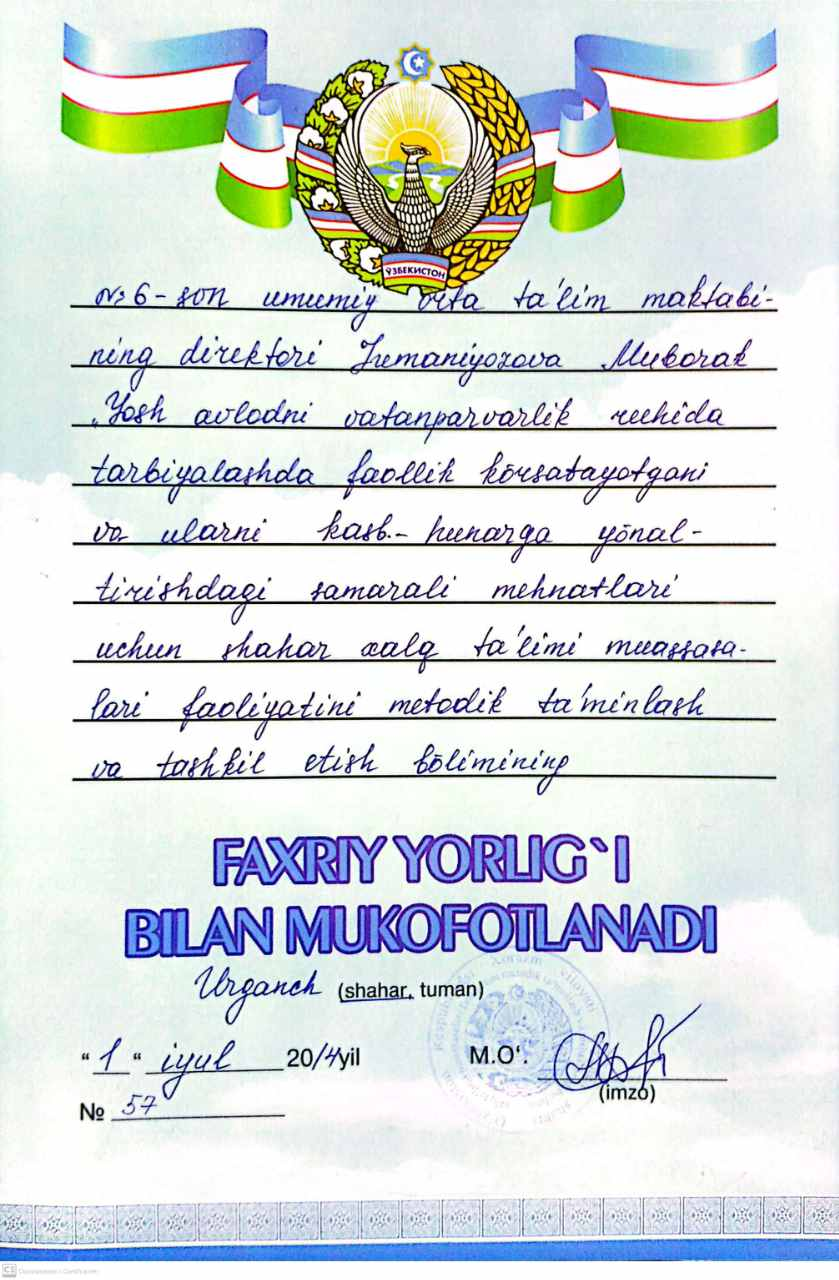 ЎЗБЕКИСТОН
№ 6 - son umumiy o'rta ta'lim maktabi-
ning direktori Jumaniyozova Muborak
„Yosh avlodni vatanparvarlik ruhida
tarbiyalashda faollik kōrsatayotgani
va ularni kasb.- hunarga yōnal-
tirishdagi samarali mehnatlari
uchun shahar xalq ta'limi muassasa-
lari faoliyatini metodik ta'minlash
va tashkil etish bōlimining
FAXRIY YORLIG`I
BILAN MUKOFOTLANADI
Urganch (shahar, tuman)
“ 1 “ iyul 2014yil M.O‘.
(imzo)
№ 57